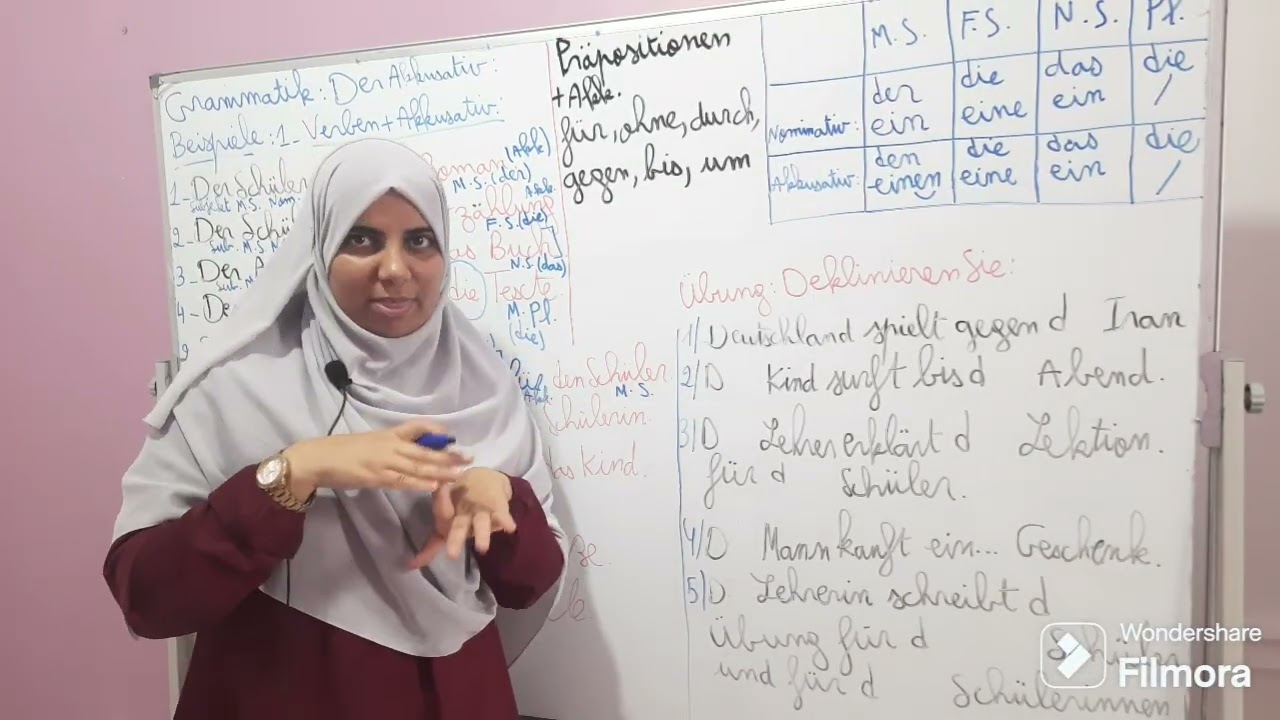 Grammatik: Der Akkusativ:
Beispiele: 1- Verben + Akkusativ:
1- Der Schüler
Subjekt M.S. Nom.
Roman (Akk)
M.S. (den)
2- Der Schü
sub. M.S. N
zählung Akk.
F.S. (die)
3- Der A
sub. M.
as Buch
N.S. (das)
4- De
die Texte
M. Pl.
(die)
den Schüler
Akk. M.S.
Schülerin.
das Kind.
Präpositionen
+ Akk.
für, ohne, durch,
gegen, bis, um
M.S. F.S. N.S. Pl.
Nominativ: der die das die
ein eine ein /
Akkusativ: den die das die
einen eine ein /
Übung: Deklinieren Sie:
1/ Deutschland spielt gegen d Iran
2/ D Kind surft bis d Abend.
3/ D Lehrer erklärt d Lektion
für d Schüler.
4/ D Mann kauft ein... Geschenk.
5/ D Lehrerin schreibt d
Übung für d
und für d Schülerinnen
Wondershare
Filmora